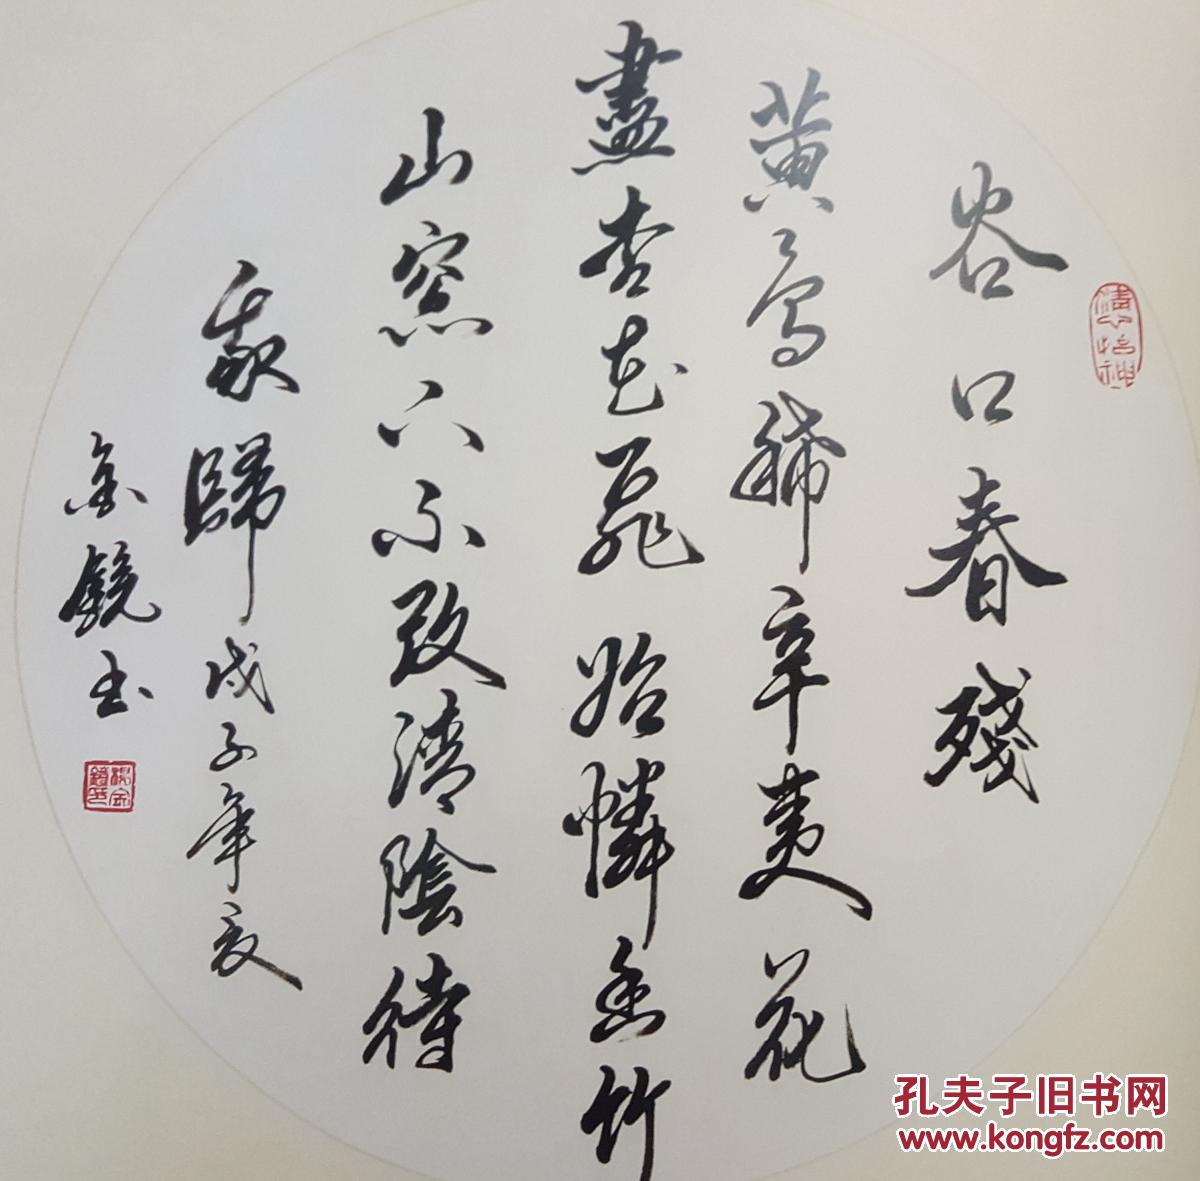 谷口春殘
黄鳥稀辛夷花
盡杏花飛始憐幽竹
山窓下不改清陰待
我歸戊子年夏
金鏡书
清心怡神
孔夫子旧书网
www.kongfz.com